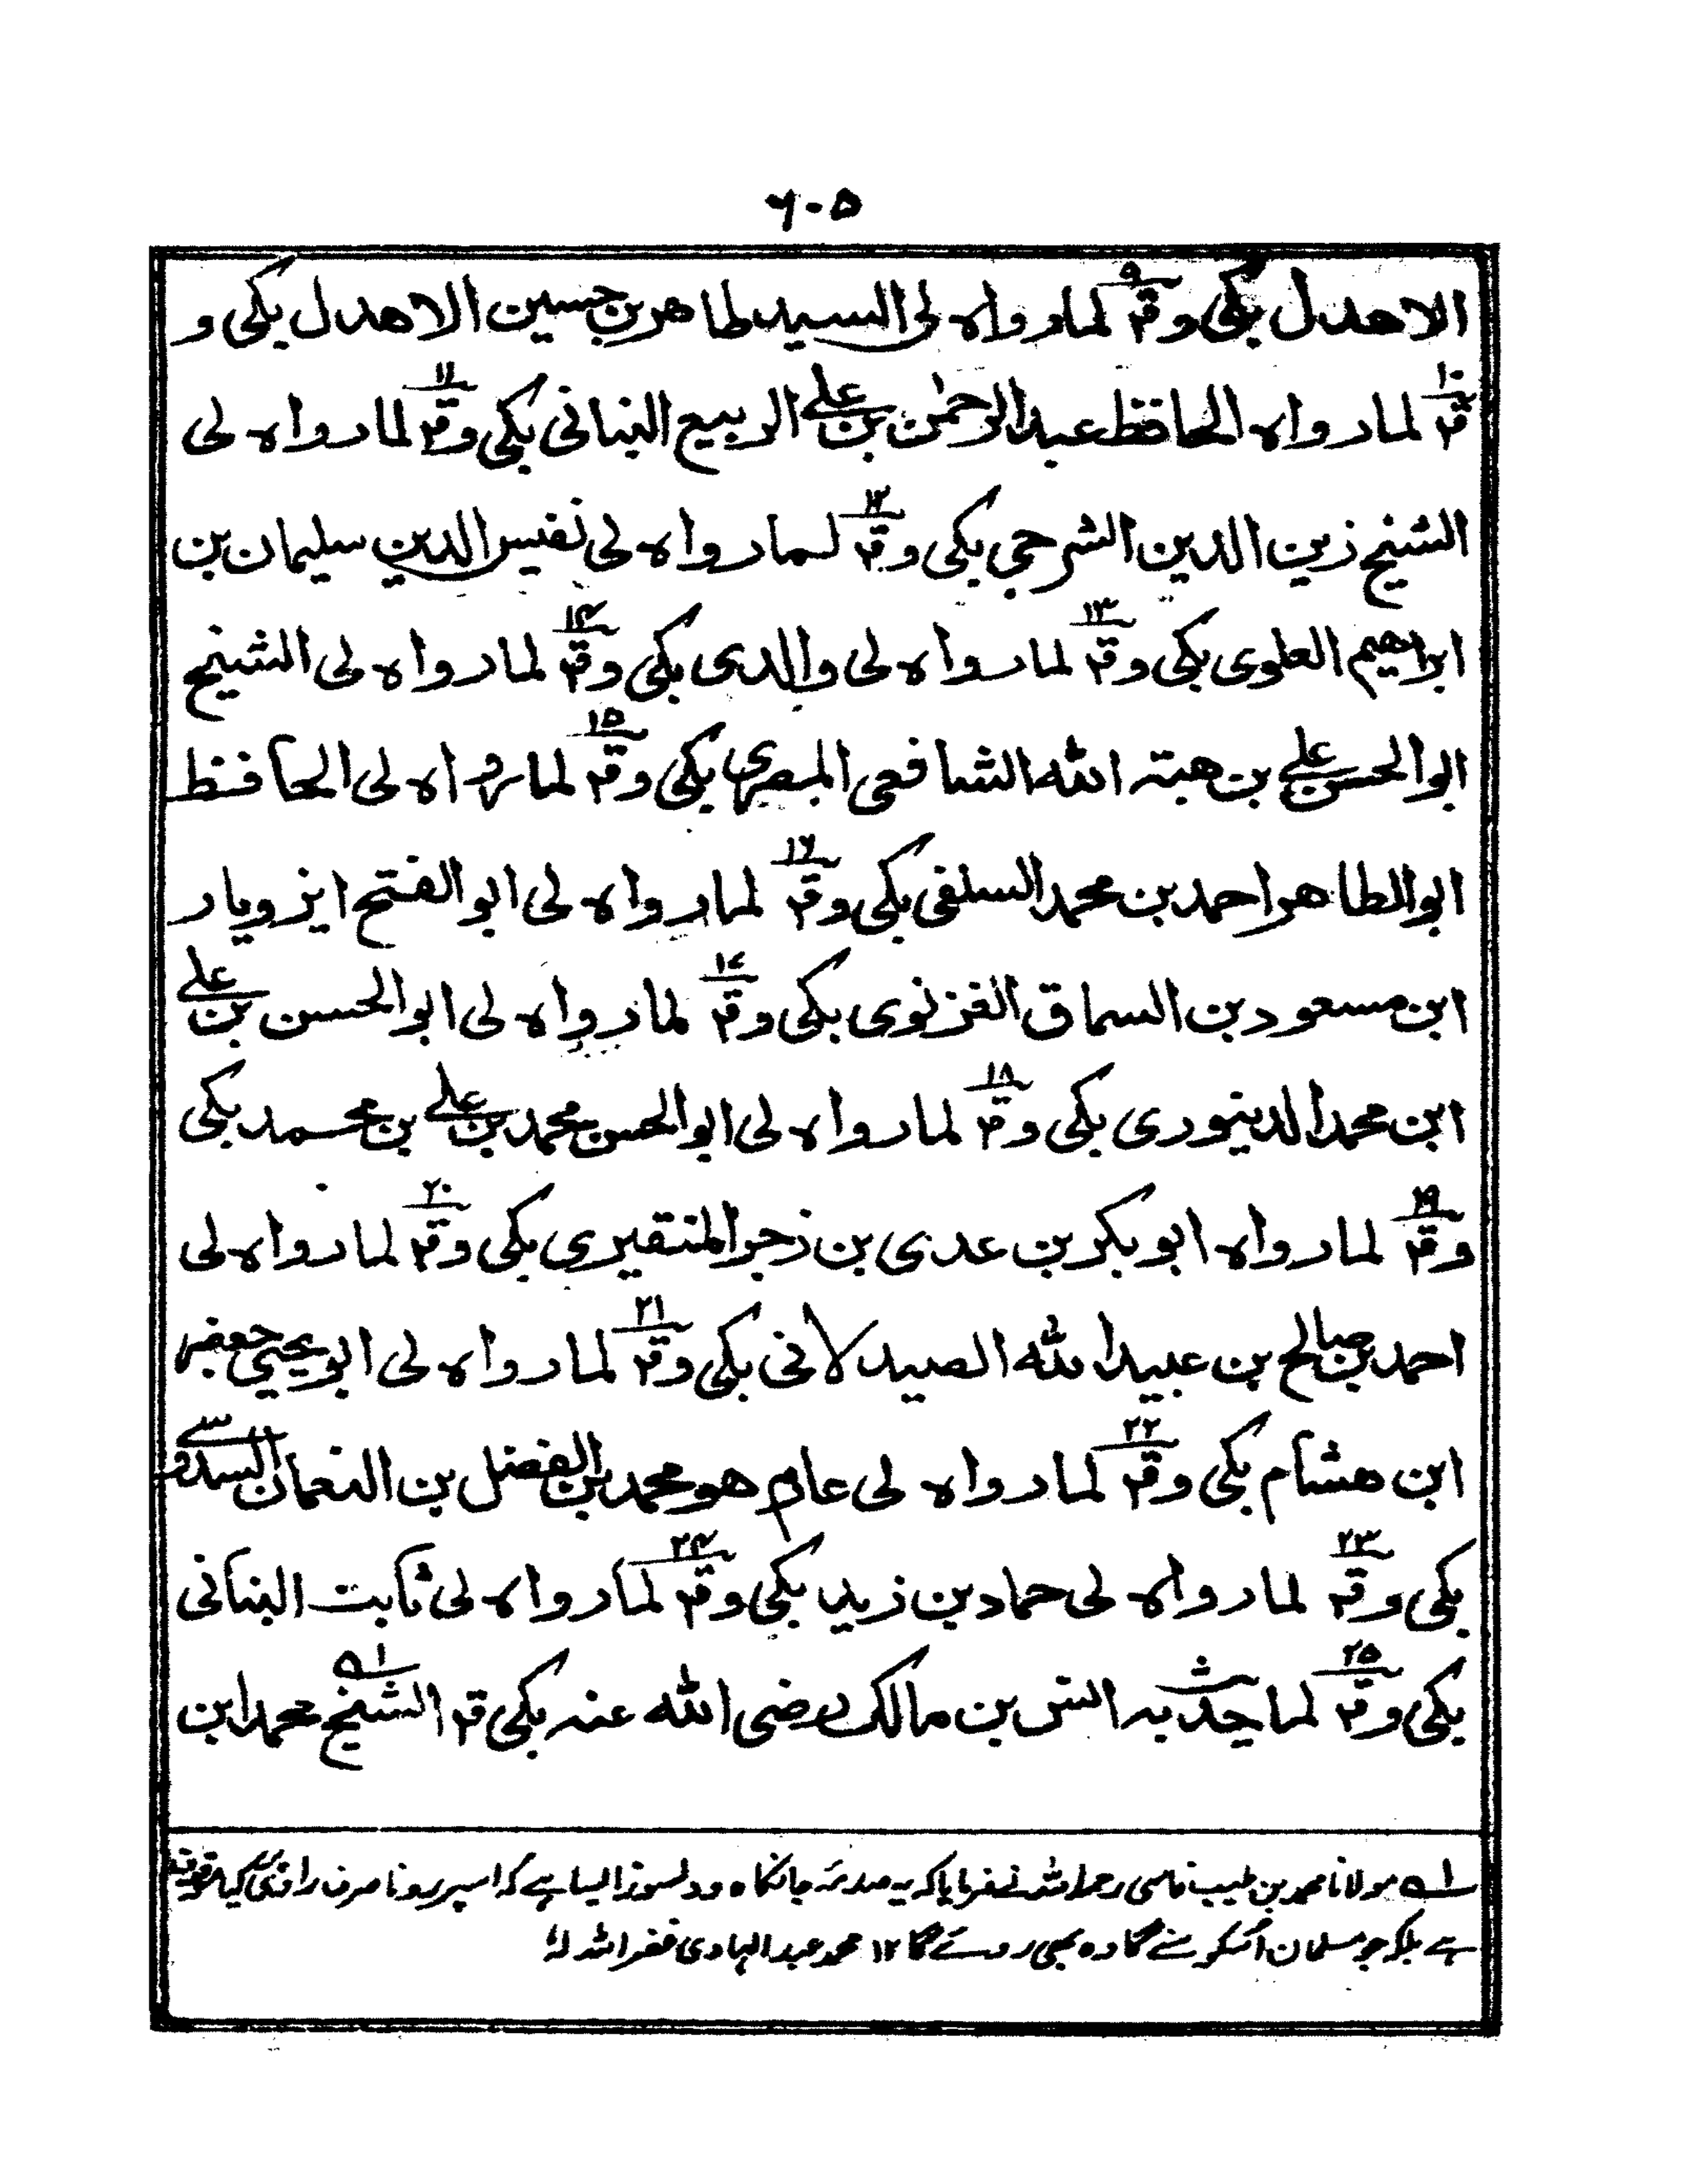 ٦٠٥
الاهدل بکی وقم ٩ لما رواه لی السید طاهر بن حسین الاهدل بکی و
قم ١٠ لما رواه الحافظ عبد الرحمٰن بن علی الربیع البنانی بکی وقم ١١ لما رواه لی
الشیخ زین الدین الشرحی بکی وقم ١٢ لما رواه لی نفیس الدین سلیمان بن
ابراهیم العلوی بکی وقم ١٣ لما رواه لی والدی بکی وقم ١٤ لما رواه لی الشیخ
ابو الحسن علی بن هبته الله الشافعی المصری بکی وقم ١٥ لما رواه لی الحافظ
ابو الطاهر احمد بن محمد السلفی بکی وقم ١٦ لما رواه لی ابو الفتح ایزویار
ابن مسعود بن السماق الغزنوی بکی وقم ١٧ لما رواه لی ابو الحسن بن علی
ابن محمد الدینوری بکی وقم ١٨ لما رواه لی ابو الحسن محمد بن علی بن محمد بکی
وقم ١٩ لما رواه ابو بکر بن عدی بن زجر المنقیری بکی وقم ٢٠ لما رواه لی
احمد بن صالح بن عبید الله الصیدلانی بکی وقم ٢١ لما رواه لی ابو یحیی جعفر
ابن هشام بکی وقم ٢٢ لما رواه لی عارم هو محمد بن الفضل بن النعمان السدوسی
بکی وقم ٢٣ لما رواه لی حماد بن زید بکی وقم ٢٤ لما رواه لی ثابت البنانی
بکی وقم ٢٥ لما حدث به انس بن مالک رضی الله عنه بکی قم الشیخ ١ محمد ابن
١ مولانا محمد بن طیب فاسی رحمه الله نے فرمایا کہ یہ صدمہ جانکاہ و دلسوز ایسا ہے کہ اسپر رونا صرف راوی کی کیا موقوف
ہے بلکہ جو مسلمان اسکو سنے گا وہ بھی روئے گا ١٢ محمد عبد الہادی غفر اللہ لہٗ